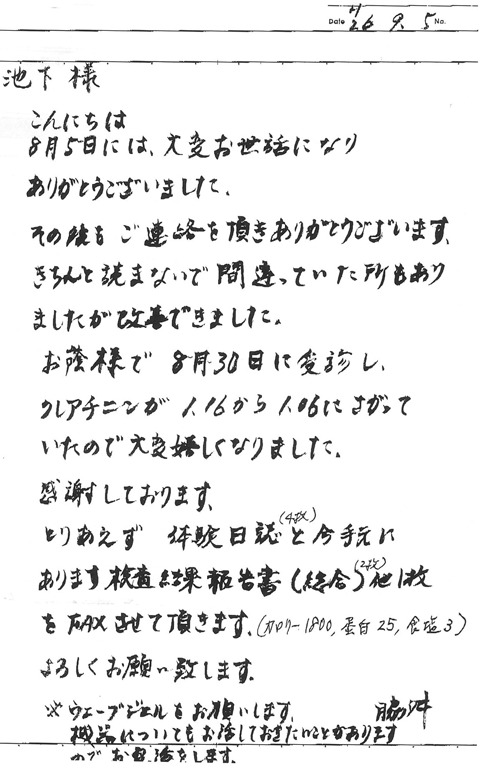 Date H26. 9. 5 No.
池下様
こんにちは
8月5日には、大変お世話になり
ありがとうございました。
その後もご連絡を頂きありがとうございます。
きちんと読まないで間違っていた所もあり
ましたが改善できました。
お蔭様で 8月30日に受診し、
クレアチニンが 1.16から1.06にさがって
いたので大変嬉しくなりました。
感謝しております。
とりあえず 体験日誌(4枚)と今手元に
あります検査結果報告書(総合)(2枚)他1枚
をFAXさせて頂きます。(カロリー1800, 蛋白25, 食塩3)
よろしくお願い致します。
※ウェーブジェルをお願いします。
機器についてもお話しておきたいことがあります
のでお電話をします。